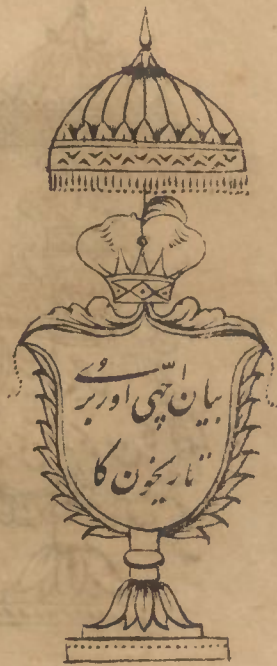 بیان اچّهی اور بُرے
تاریخون کا